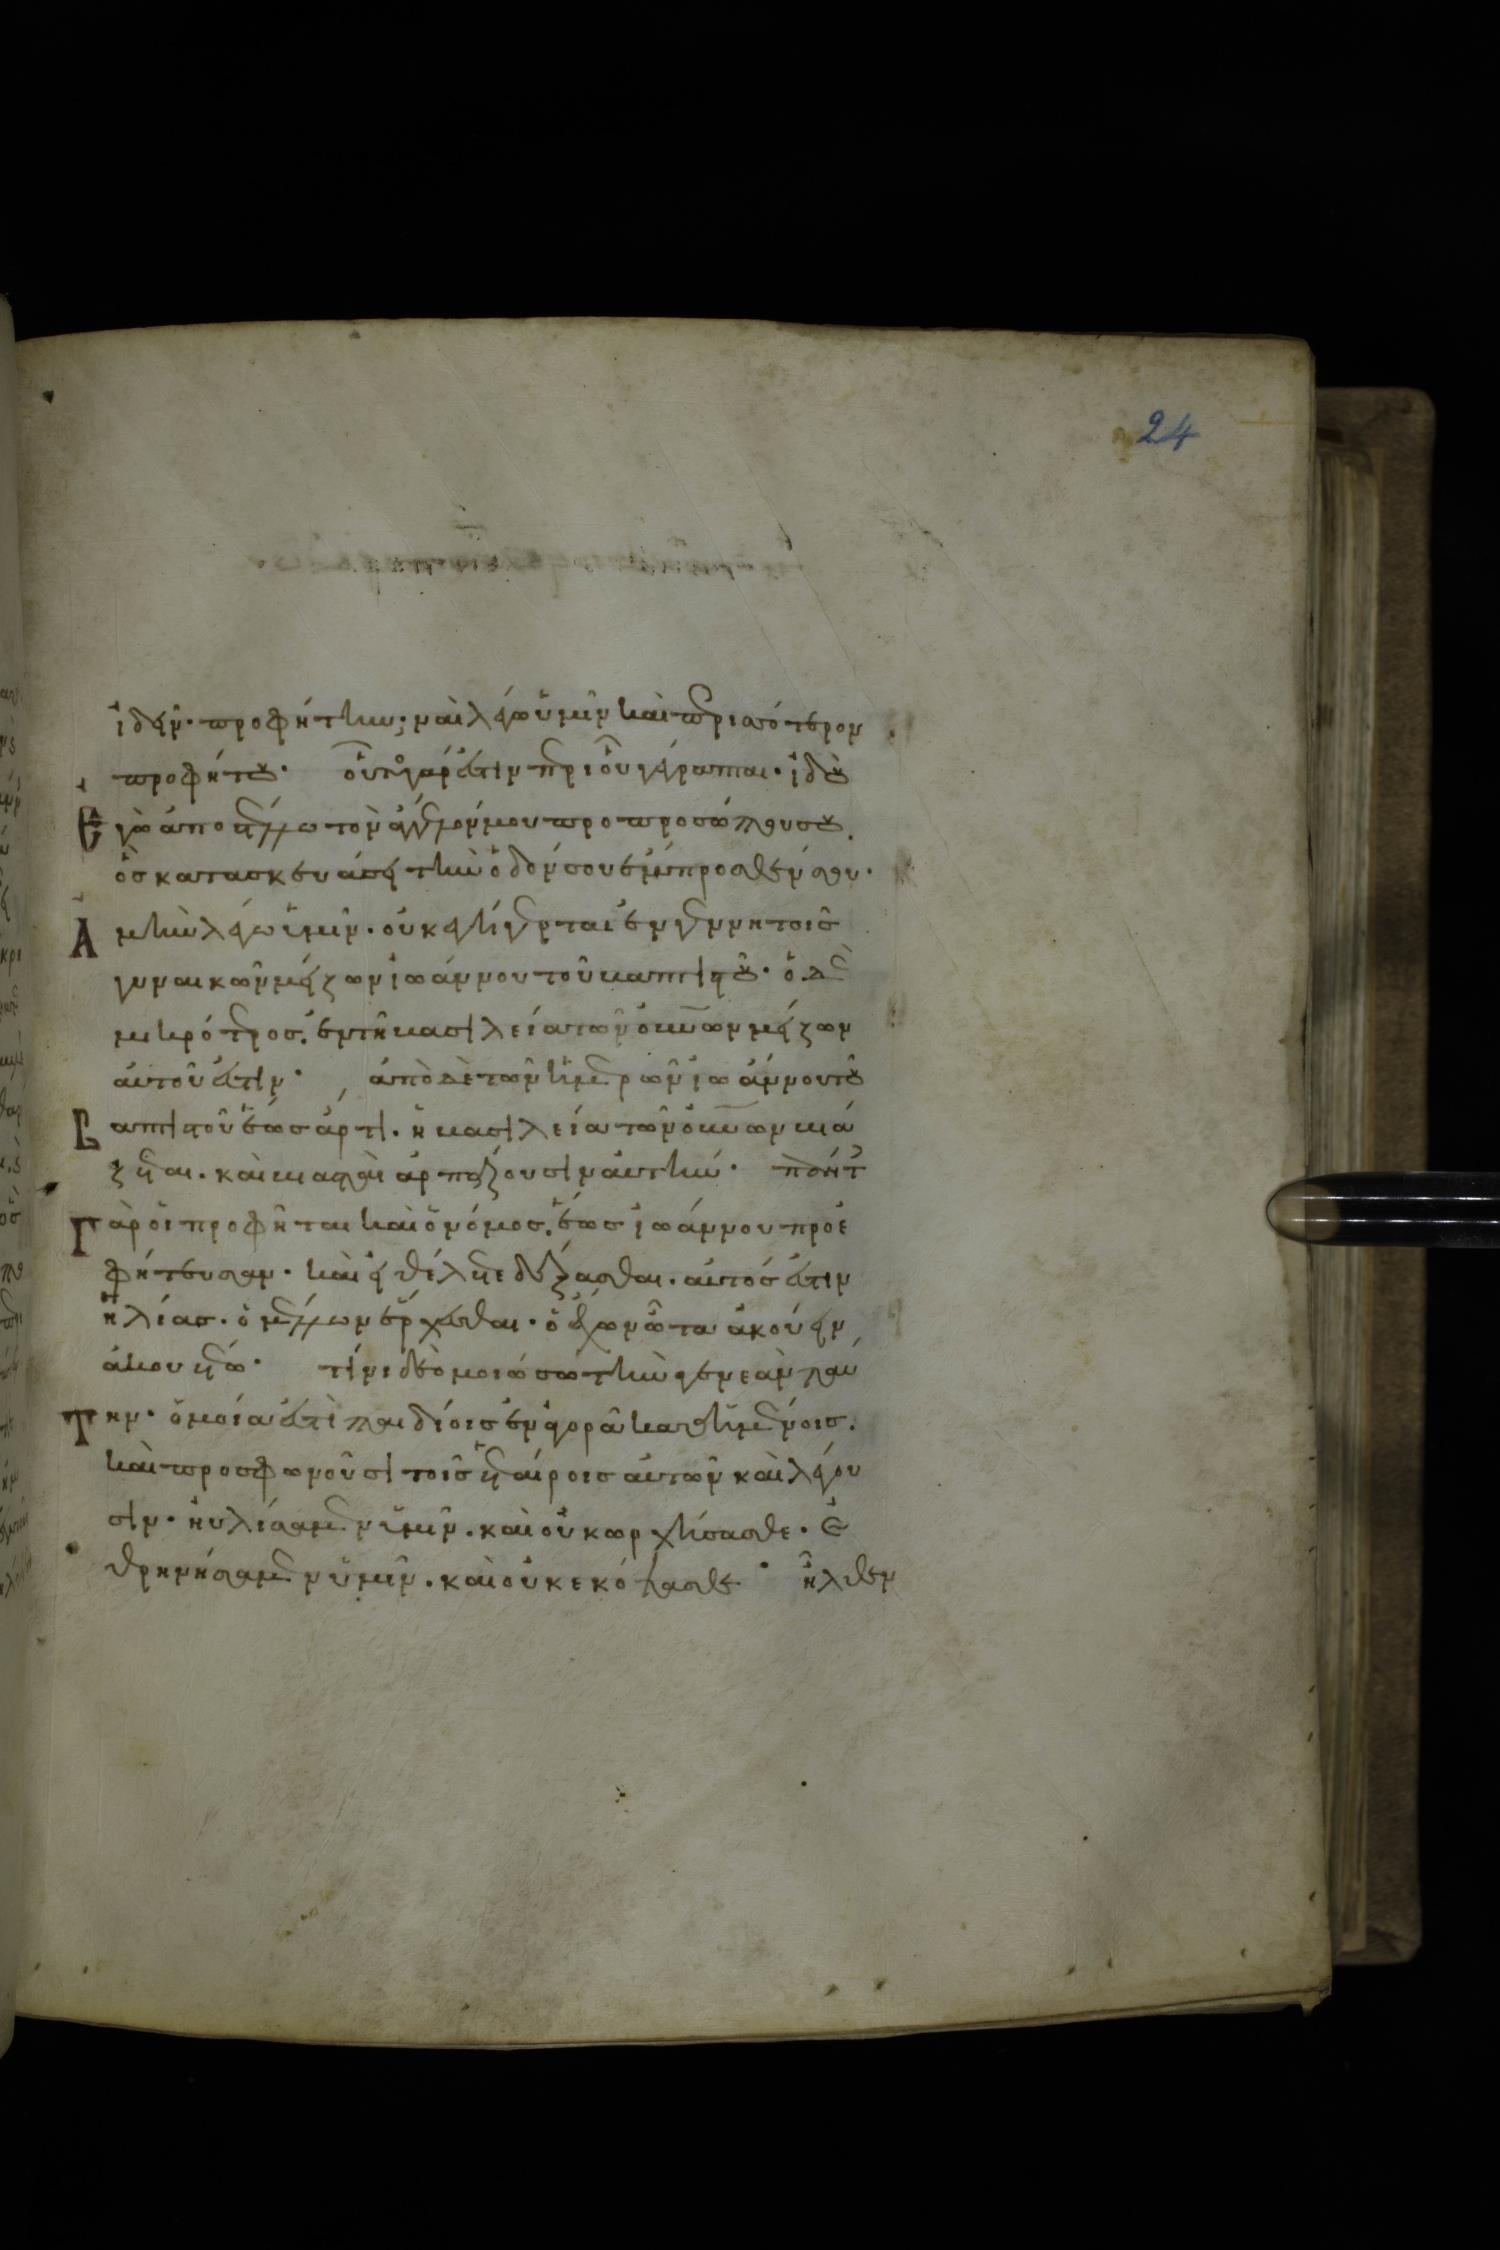 24
ἰδεῖν· προφήτην; ναὶ λέγω ὑμῖν καὶ περισσότερον
προφήτου· οὗτος γάρ ἐστιν περὶ οὗ γέγραπται· ἰδοὺ
Ἐγὼ ἀποστέλλω τὸν ἄγγελόν μου πρὸ προσώπου σου.
ὃς κατασκευάσει τὴν ὁδόν σου ἔμπροσθέν σου·
Ἀμὴν λέγω ὑμῖν· οὐκ ἐγήγερται ἐν γεννητοῖς
γυναικῶν μείζων ἰωάννου τοῦ βαπτιστοῦ· ὁ δὲ
μικρότερος. ἐν τῆ βασιλεία τῶν οὐνῶν μείζων
αὐτοῦ ἐστιν· ἀπὸ δὲ τῶν ἡμερῶν ἰωάννου τοῦ
Βαπτιστοῦ ἕως ἄρτι. ἡ βασιλεία τῶν οὐνῶν βιά
ζεται. καὶ βιασταὶ ἁρπάζουσιν αὐτήν· πάντες
Γὰρ οἱ προφῆται καὶ ὁ νόμος. ἕως ἰωάννου προε
φήτευσαν· καὶ εἰ θέλετε δέξασθαι. αὐτός ἐστιν
ἠλίας. ὁ μέλλων ἔρχεσθαι· ὁ ἔχων ὦτα ἀκούειν
ἀκουέτω· τίνι δὲ ὁμοιώσω τὴν γενεὰν ταύ
Την· ὁμοία ἐστὶ παιδίοις ἐν ἀγορᾶ καθημένοις.
καὶ προσφωνοῦσι τοῖς ἑταίροις αὐτῶν καὶ λέγου
σιν· ηὐλίσαμεν ὑμῖν. καὶ οὐκ ὠρχήσασθε· Ἐ
θρηνήσαμεν ὑμῖν. καὶ οὐκ ἐκόψασθε· ἦλθεν